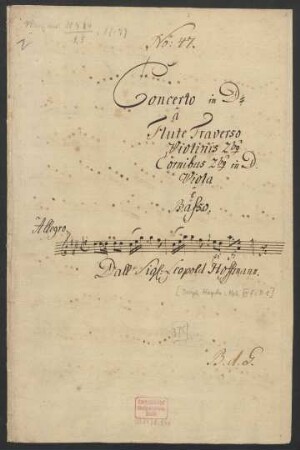 No: 47.
Concerto in D♮
a
Flute Traverso
Violinis 2bg
Cornibus 2bg in D
Viola
e
Basso,
Allegro
Dall Sigl: Leopold Hoffmann.
B. A. G.